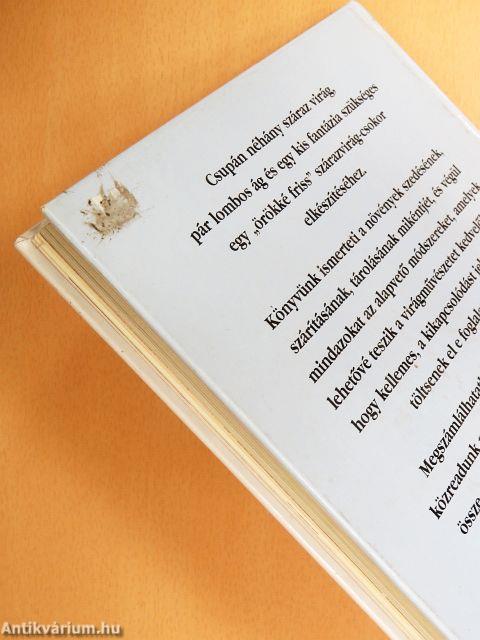 Csupán néhány száraz virág,
pár lombos ág és egy kis fantázia szükséges
egy „örökké friss” szárazvirág-csokor
elkészítéséhez.
Könyvünk ismerteti a növények szedésének
szárításának, tárolásának mikéntjét, és végül
mindazokat az alapvető módszereket, amelyek
lehetővé teszik a virágművészetet
hogy kellemes, a kikapcsolódást
töltsenek el e
közreadunk
Antikvárium.hu